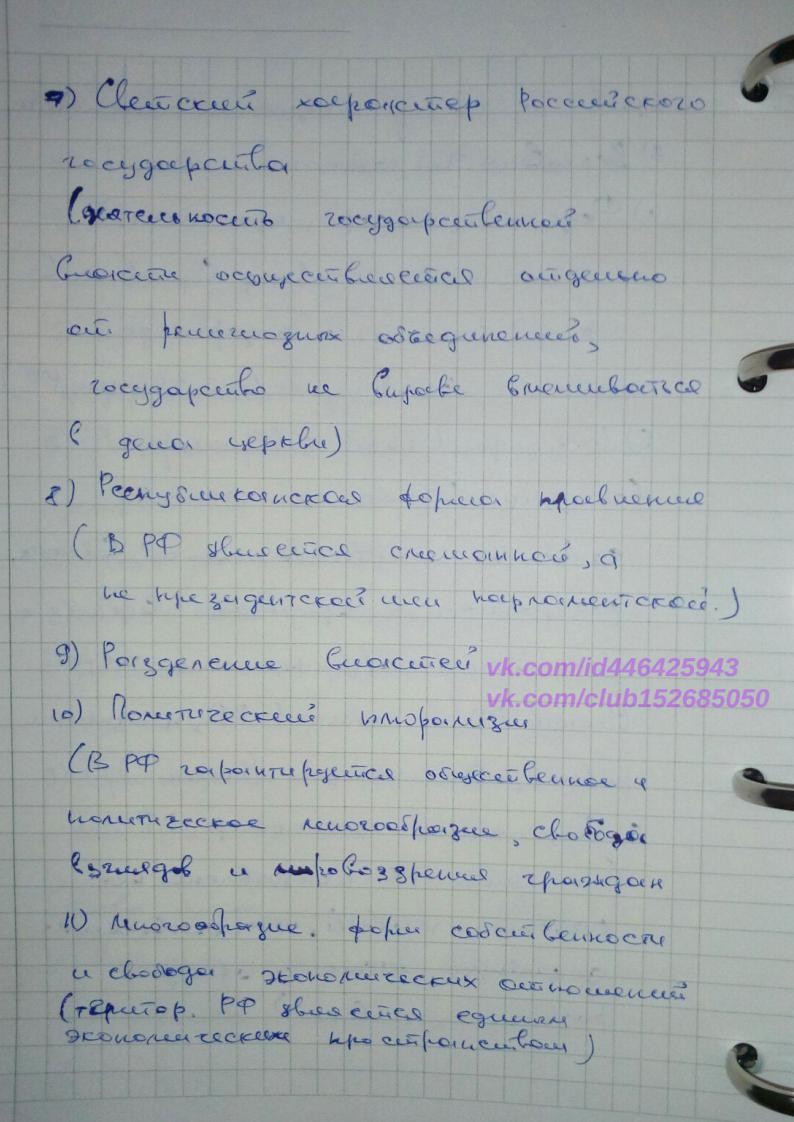 7) Светский характер Российского
государства
(деятельность государственной
власти осуществляется отдельно
от религиозных объединений,
государство не вправе вмешиваться
в дела церкви)
8) Республиканская форма правления
(В РФ является смешанной, а
не президентской или парламентской.)
9) Разделение властей
vk.com/id446425943
vk.com/club152685050
10) Политический плюрализм
(В РФ гарантируется общественное и
политическое многообразие, свобода
взглядов и мировоззрения граждан
11) Многообразие форм собственности
и свобода экономических отношений
(територ. РФ является единым
экономическим пространством)